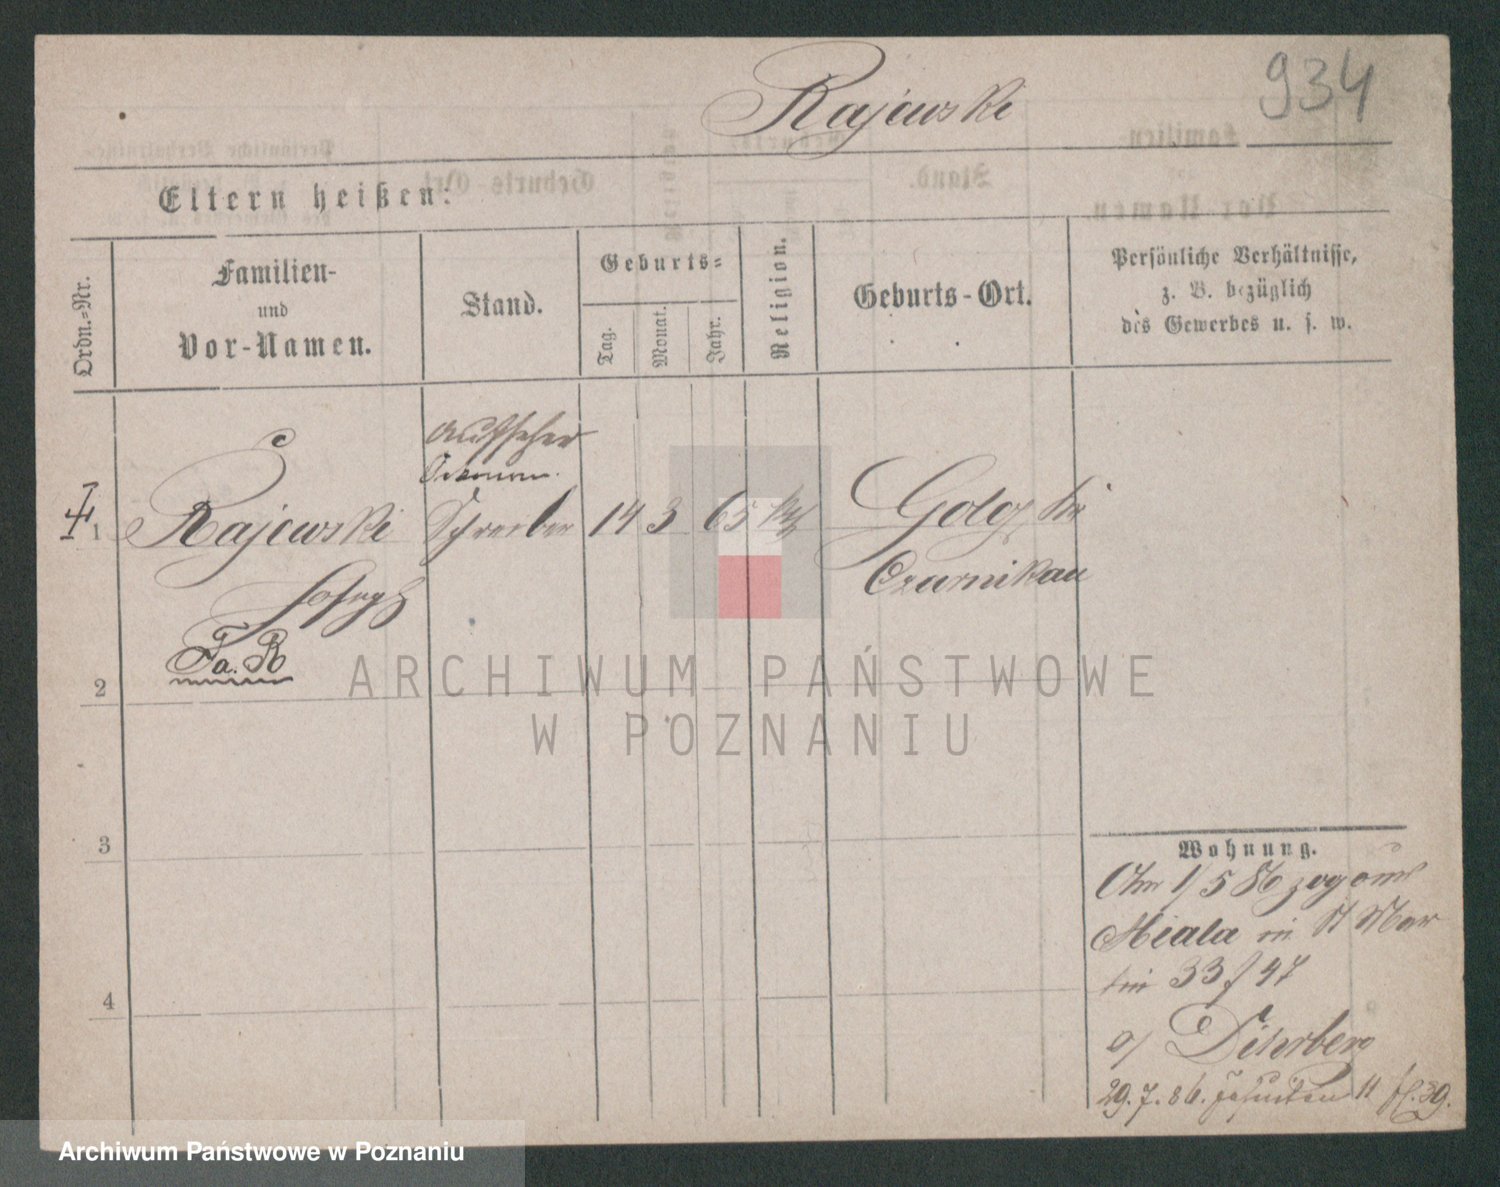 Rajewski
934
Eltern heißen:
Ordn.-Nr.
Familien-
und
Vor-Namen.
Stand.
Geburts-
Tag.
Monat.
Jahr.
Religion.
Geburts-Ort.
Persönliche Verhältnisse,
z. B. bezüglich
des Gewerbes u. s. w.
Aufseher
Oekonom.
1 Rajewski Schreiber 14 3 65 kath
Czarnikau
Joseph
Fa. R
2
3
4
Wohnung.
1/5 86 zog aus
Miala in St Mar
tin 33 f 47
29.7.86. Jesuiten 11
ARCHIWUM PAŃSTWOWE
W POZNANIU
Archiwum Państwowe w Poznaniu